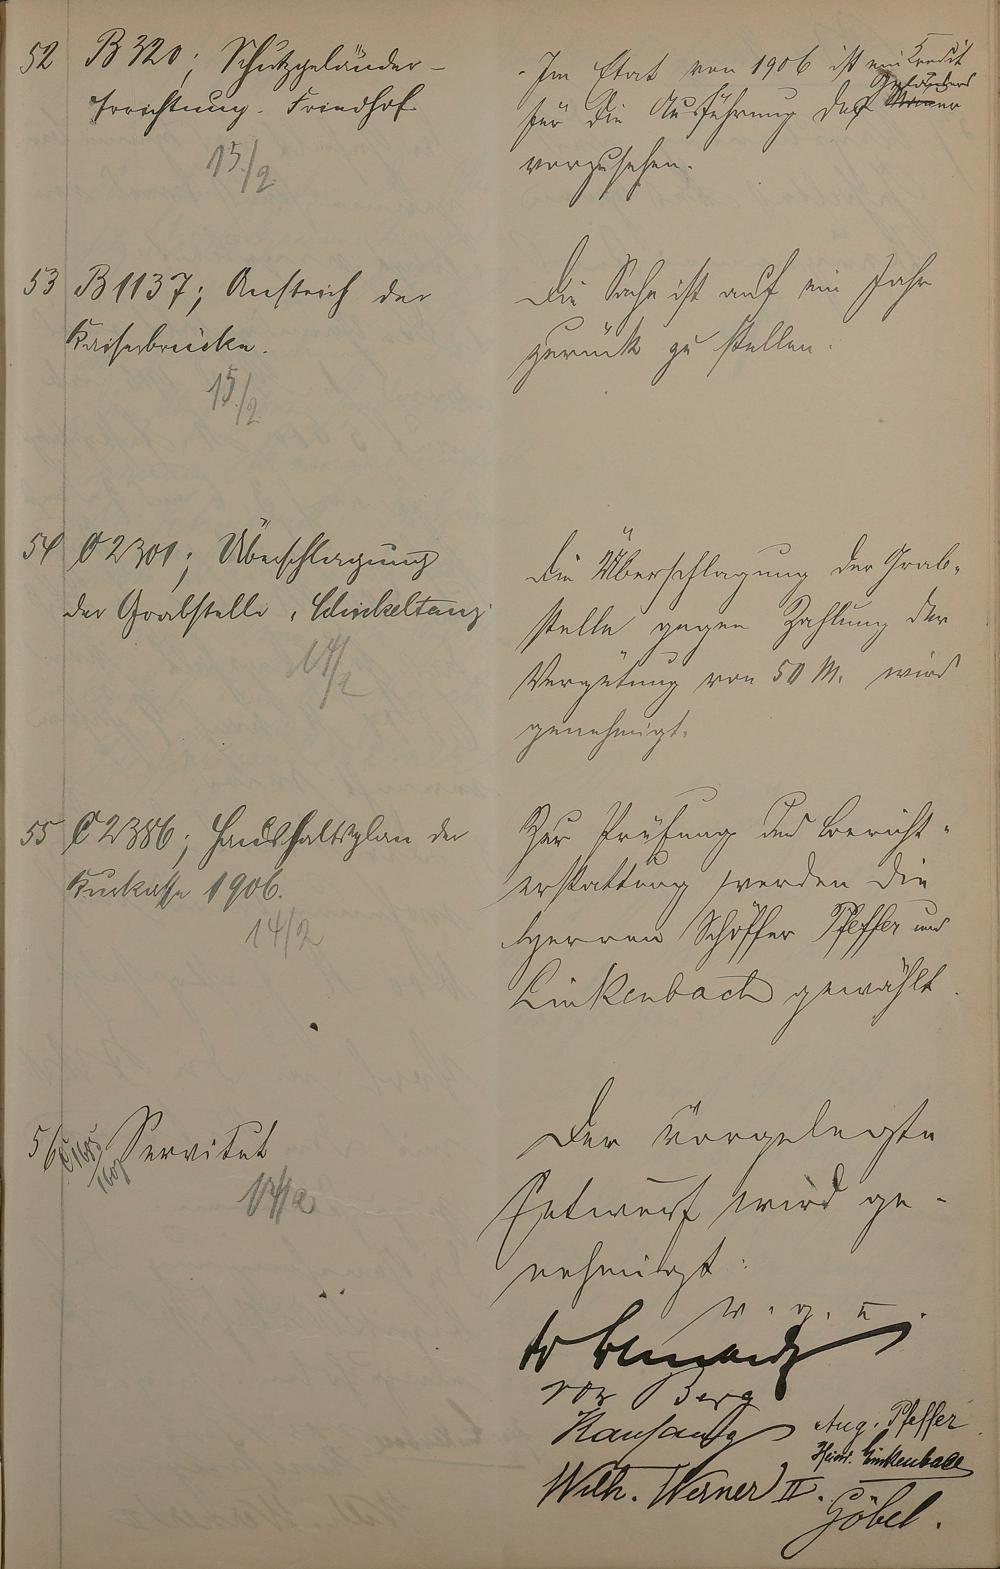 52 B 320; Schutzgeländer-
Errichtung. Friedhof
15/2
Im Etat von 1906 ist ein Kredit
für die Ausführung des Geländers
vorzusehen.
53 B 1137; Anstrich der
Kaiserbrücke.
15/2
Die Sache ist auf ein Jahr
zurück zu stellen.
54 C 2301; Überschlagung
der Grabstelle Winkeltanz
14/2
Die Überschlagung der Grab-
stelle gegen Zahlung der
Vergütung von 50 M. wird
genehmigt.
55 C 2386; Haushaltsplan der
Kurkasse 1906.
14/2
Zur Prüfung und Bericht-
erstattung werden die
Herren Schöffer Pfeffer und
Linkenbach gewählt.
56 C 1605
1607 Servitut
14/2
Der vorgelegte
Entwurf wird ge-
nehmigt.
v. g. u.
von Berg
Aug. Pfeffer
Heinr. Linkenbach
Wilh. Werner II.
Göbel.